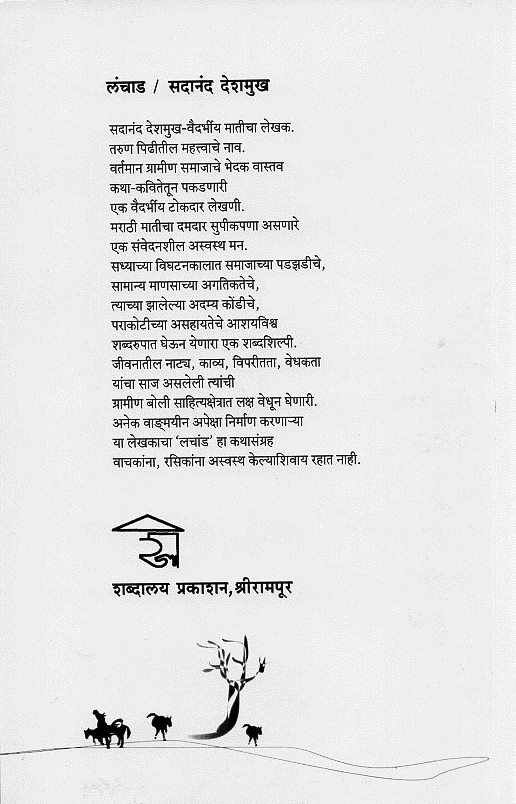 लंचाड / सदानंद देशमुख
सदानंद देशमुख-वैदर्भीय मातीचा लेखक.
तरुण पिढीतील महत्त्वाचे नाव.
वर्तमान ग्रामीण समाजाचे भेदक वास्तव
कथा-कवितेतून पकडणारी
एक वैदर्भीय टोकदार लेखणी.
मराठी मातीचा दमदार सुपीकपणा असणारे
एक संवेदनशील अस्वस्थ मन.
सध्याच्या विघटनकालात समाजाच्या पडझडीचे,
सामान्य माणसाच्या अगतिकतेचे,
त्याच्या झालेल्या अदम्य कोंडीचे,
पराकोटीच्या असहायतेचे आशयविश्व
शब्दरुपात घेऊन येणारा एक शब्दशिल्पी.
जीवनातील नाट्य, काव्य, विपरीतता, वेधकता
यांचा साज असलेली त्यांची
ग्रामीण बोली साहित्यक्षेत्रात लक्ष वेधून घेणारी.
अनेक वाङ्‌मयीन अपेक्षा निर्माण करणाऱ्या
या लेखकाचा ‘लचांड’ हा कथासंग्रह
वाचकांना, रसिकांना अस्वस्थ केल्याशिवाय रहात नाही.
शब्दालय प्रकाशन,श्रीरामपूर